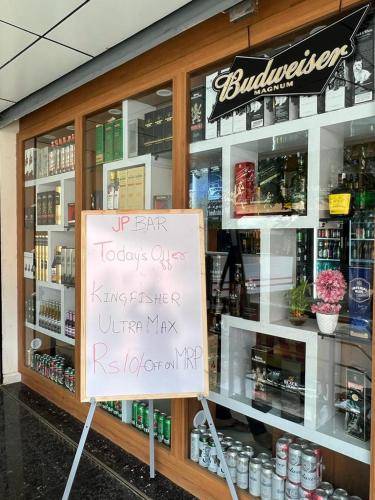 Budweiser
MAGNUM
JP BAR
Today's Offer
KINGFISHER
ULTRA MAX
Rs.10/- OFF ON MRP